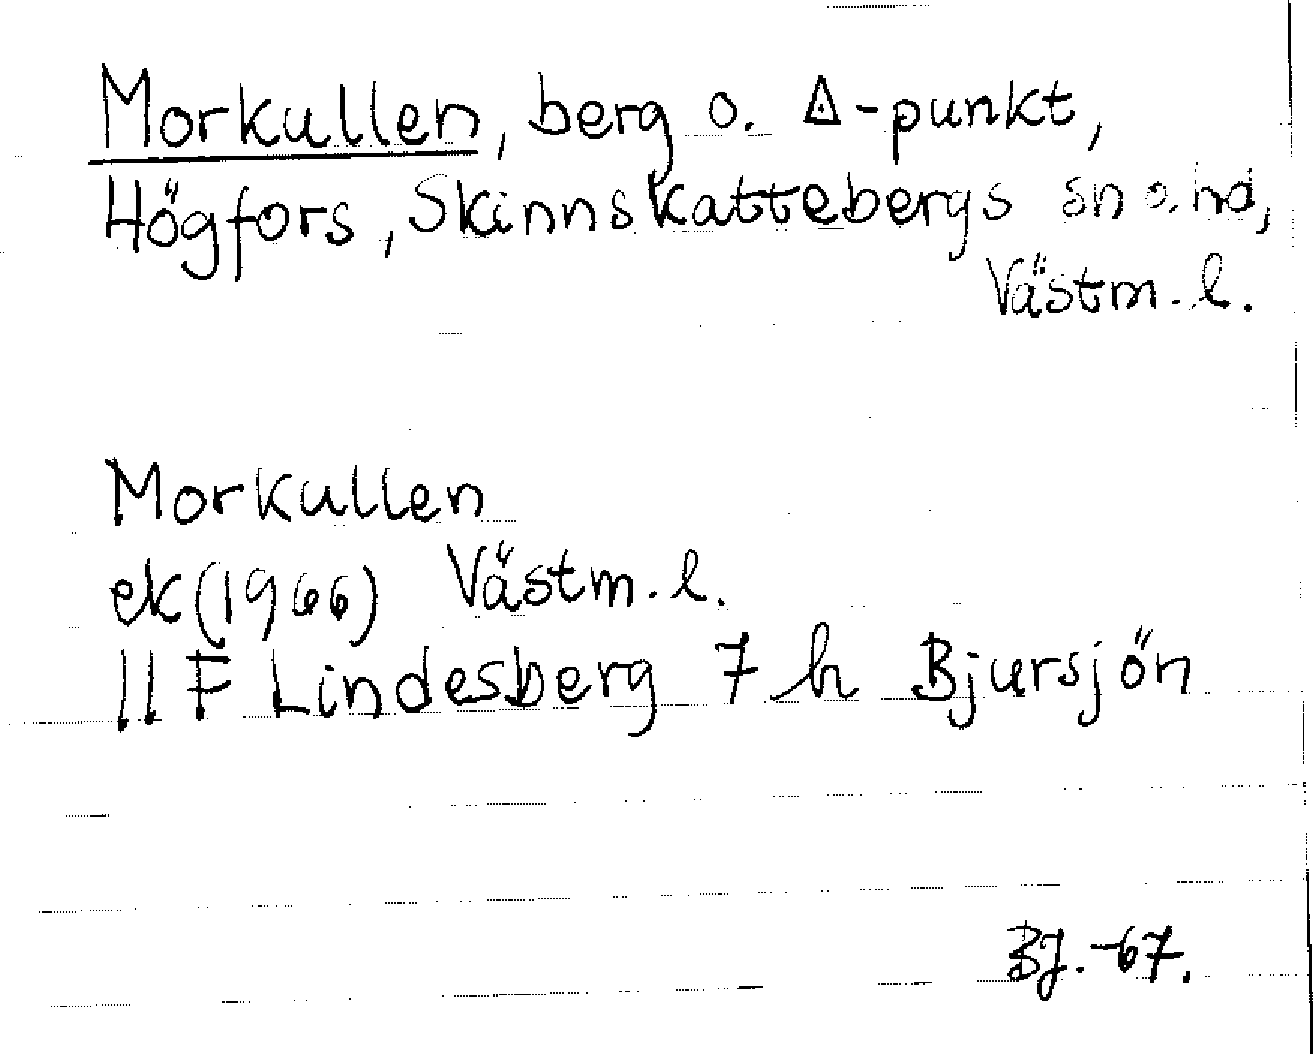 Morkullen, berg o. △-punkt,
Högfors, Skinnskattebergs sn o. hd,
Västm. l.
Morkullen
ek (1966) Västm. l.
11 F Lindesberg 7 h Bjursjön
BJ. -67.